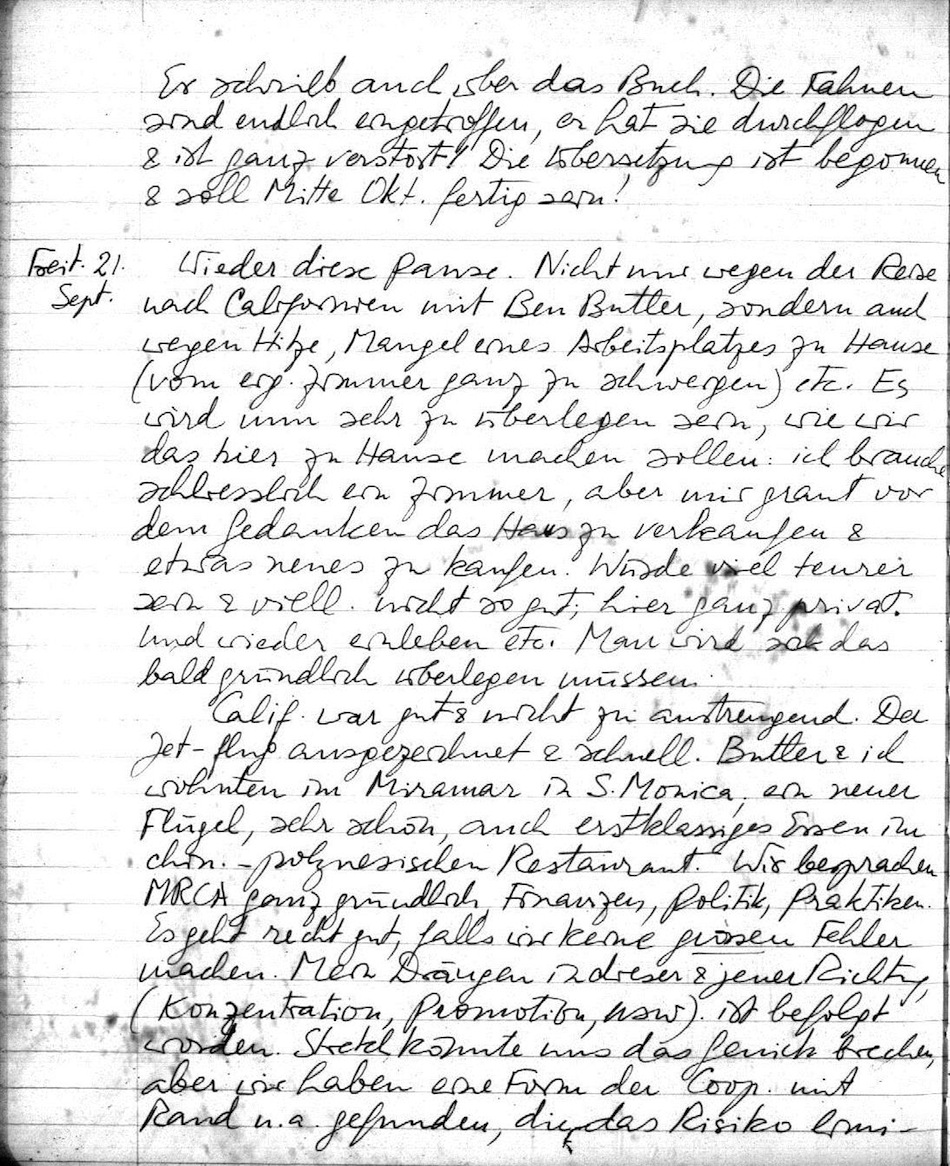 Er schrieb auch über das Buch. Die Fahnen
sind endlich eingetroffen, er hat sie durchflogen
& ist ganz verstört! Die Übersetzung ist begonnen
& soll Mitte Okt. fertig sein!
Freit. 21. Wieder diese Pause. Nicht nur wegen der Reise
Sept. nach Californien mit Ben Butler, sondern auch
wegen Hitze, Mangel eines Arbeitsplatzes zu Hause
(vom eig. Zimmer ganz zu schweigen) etc. Es
wird nun sehr zu überlegen sein, wie wir
das hier zu Hause machen sollen: ich brauche
schliesslich ein Zimmer, aber mir graut vor
dem Gedanken das Haus zu verkaufen &
etwas neues zu kaufen. Würde viel teurer
sein & viell. nicht so gut; hier ganz privat.
Und wieder einleben etc. Man wird sich das
bald gründlich überlegen müssen.
Calif. war gut & nicht zu anstrengend. Der
Jet-flug ausgezeichnet & schnell. Butler & ich
wohnten im Miramar in S. Monica, ein neuer
Flügel, sehr schön, auch erstklassiges Essen im
chin.-polynesischen Restaurant. Wir besprachen
MRCA ganz gründlich, Finanzen, Politik, Praktiken.
Es geht recht gut, falls wir keine grossen Fehler
machen. Mein Drängen in dieser & jener Richtung
(Konzentration, Promotion, usw). ist befolgt
worden. Stretch könnte uns das Genick brechen,
aber wir haben eine Form der Coop. mit
Rand u.a. gefunden, die das Risiko limi-